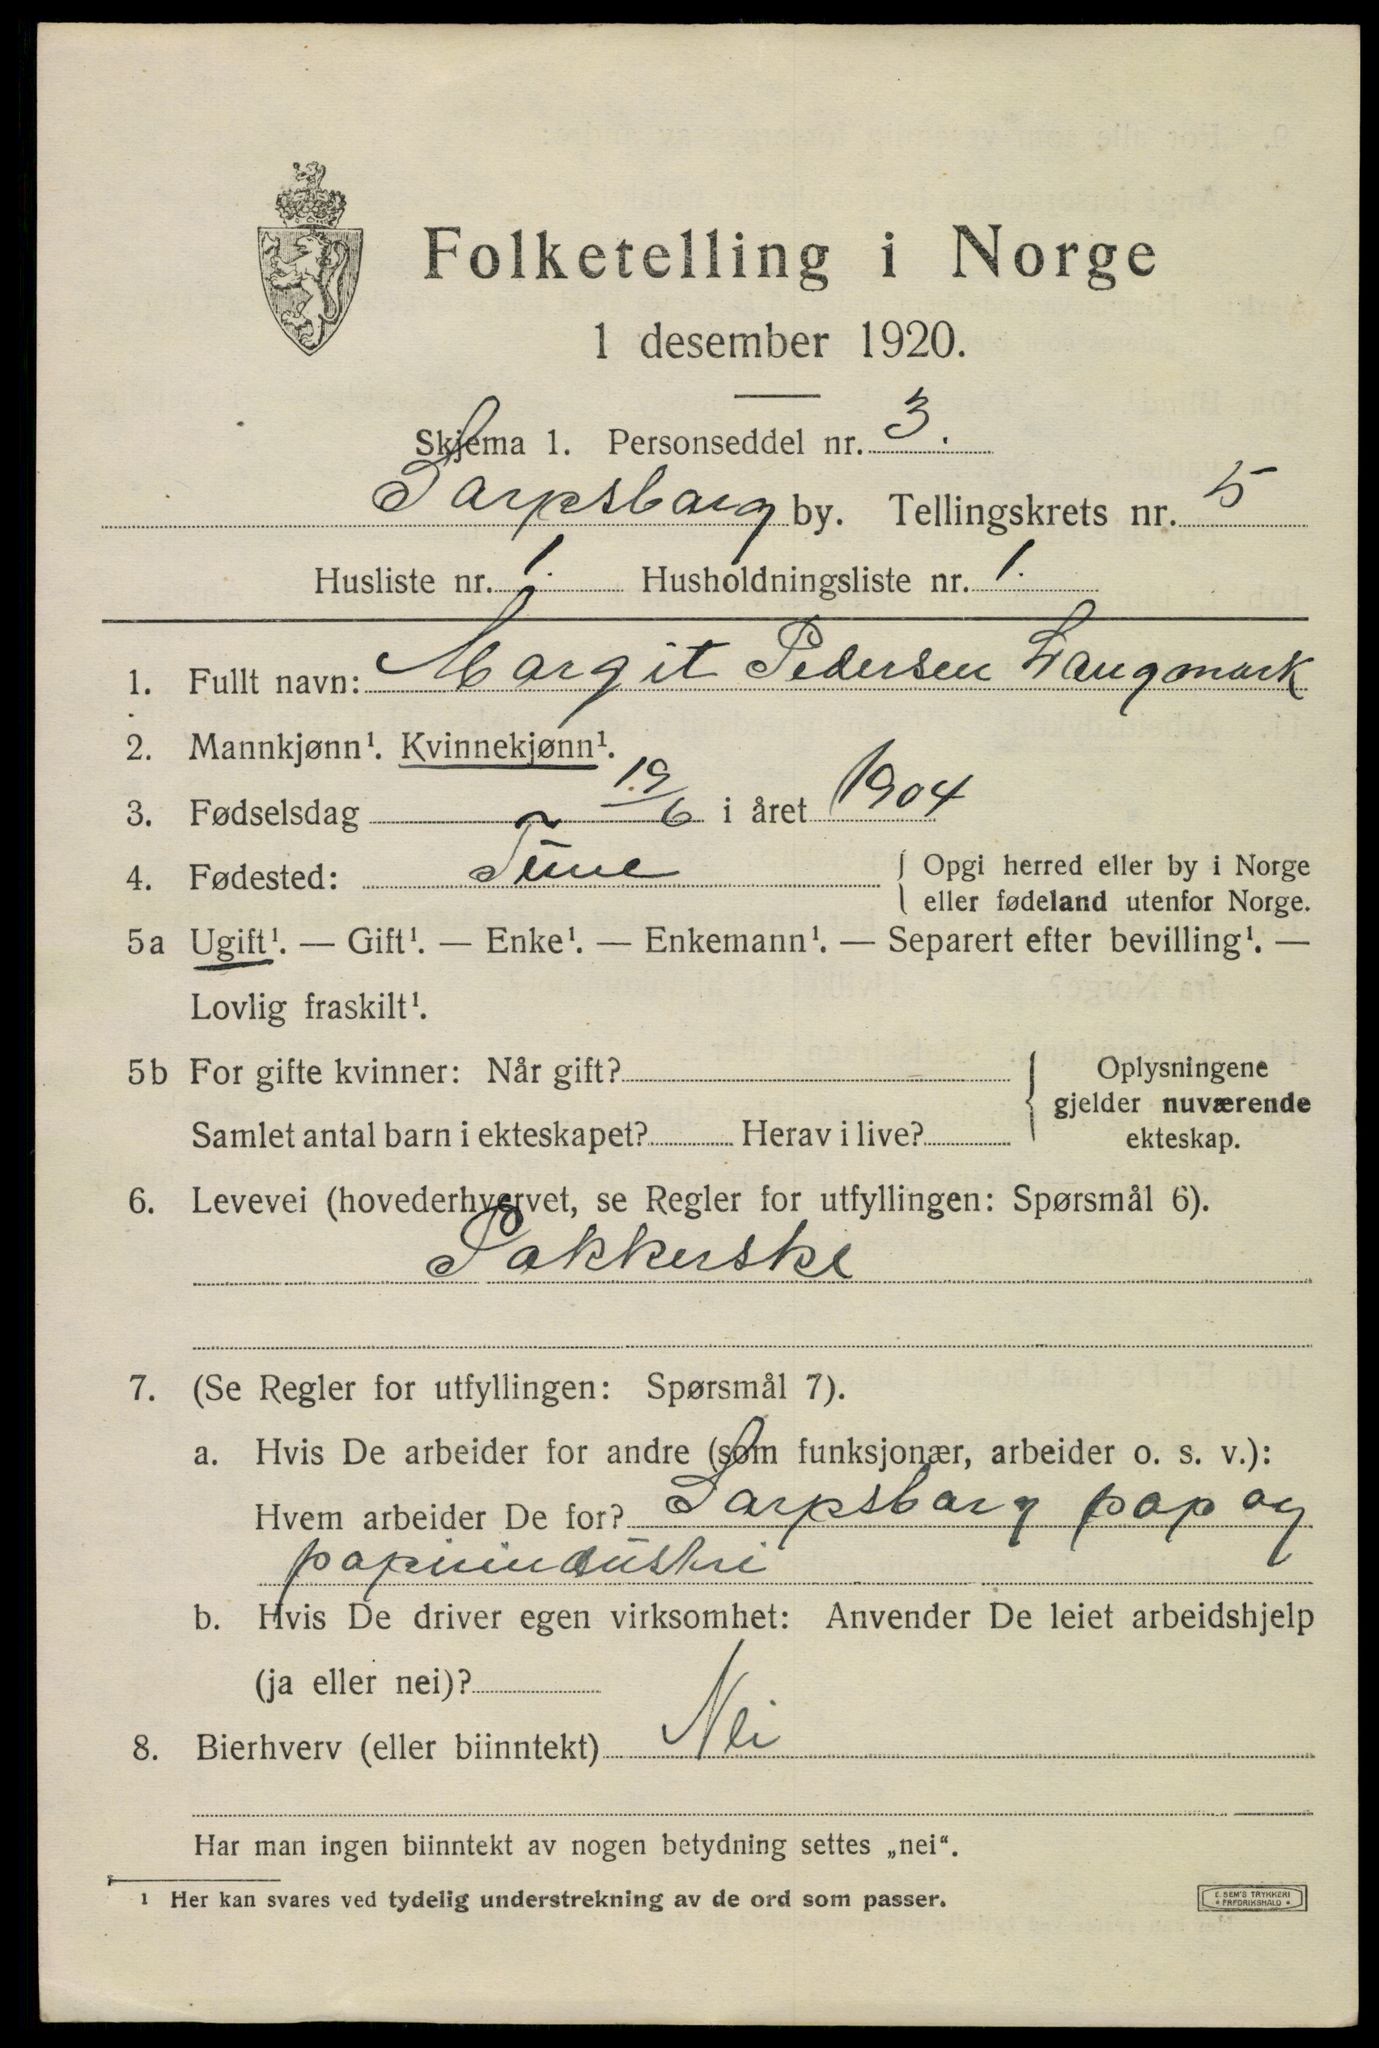 Folketelling i Norge
1 desember 1920.
Skjema 1. Personseddel nr. 3.
Sarpsborg by. Tellingskrets nr. 5
Husliste nr. 1. Husholdningsliste nr. 1.
1. Fullt navn: Margit Pedersen Langmark
2. Mannkjønn¹. Kvinnekjønn¹.
3. Fødselsdag 19/6 i året 1904
4. Fødested: Tune { Opgi herred eller by i Norge
eller fødeland utenfor Norge.
5a Ugift¹. — Gift¹. — Enke¹. — Enkemann¹. — Separert efter bevilling¹. —
Lovlig fraskilt¹.
5b For gifte kvinner: Når gift?
Samlet antal barn i ekteskapet? Herav i live?
{ Oplysningene
gjelder nuværende
ekteskap.
6. Levevei (hovederhvervet, se Regler for utfyllingen: Spørsmål 6).
Pakkerske
7. (Se Regler for utfyllingen: Spørsmål 7).
a. Hvis De arbeider for andre (som funksjonær, arbeider o. s. v.):
Hvem arbeider De for? Sarpsborg pap og
papirindustri
b. Hvis De driver egen virksomhet: Anvender De leiet arbeidshjelp
(ja eller nei)?
8. Bierhverv (eller biinntekt) Nei
Har man ingen biinntekt av nogen betydning settes „nei“.
1 Her kan svares ved tydelig understrekning av de ord som passer.
E. SEM'S TRYKKERI
FREDRIKSHALD